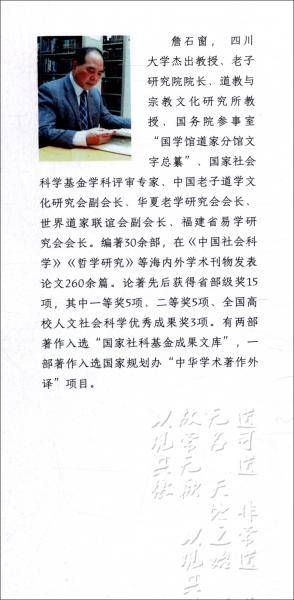 詹石窗，四川
大学杰出教授、老子
研究院院长、道教与
宗教文化研究所教
授、国务院参事室
“国学馆道家分馆文
字总纂”、国家社会
科学基金学科评审专家、中国老子道学文
化研究会副会长、华夏老学研究会会长、
世界道家联谊会副会长、福建省易学研
究会会长。编著30余部，在《中国社会科
学》《哲学研究》等海内外学术刊物发表
论文260余篇。论著先后获得省部级奖15
项，其中一等奖5项、二等奖5项、全国高
校人文社会科学优秀成果奖3项。有两部
著作入选“国家社科基金成果文库”，一
部著作入选国家规划办“中华学术著作外
译”项目。
道可道 非常道
无名 天地之始
故常无欲 以观其
以观其徼